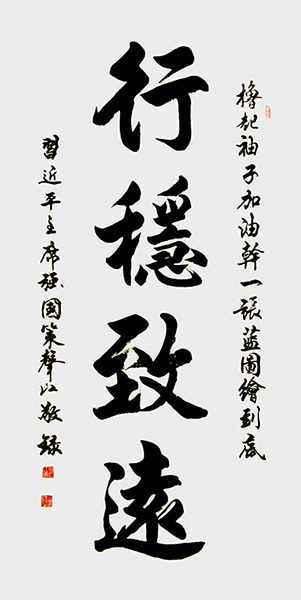 擼起袖子加油幹一張藍圖繪到底
行穩致遠
習近平主席強國策聲江敬錄